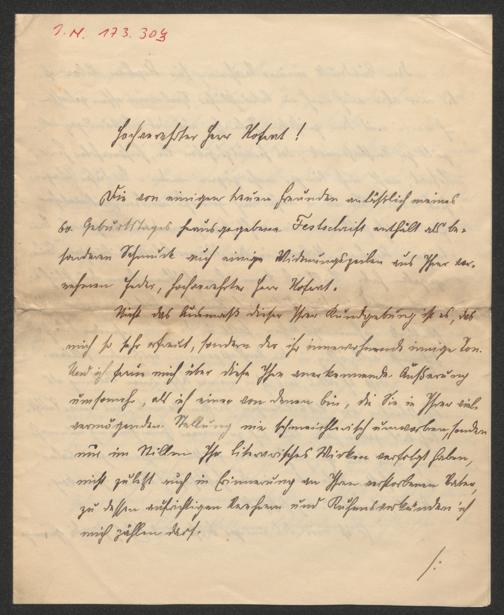 I. N. 173.304
Hochverehrter Herr Hofrat!
Die von einigen treuen Freunden anläßlich meines
60. Geburtstages herausgegebene Festschrift enthält als be-
sonderen Schmuck auch einige Widmungszeilen aus Ihrer ver-
ehrten Feder, hochverehrter Herr Hofrat.
Nicht das Ausmaß dieser Ihrer Kundgebung ist es, das
mich so sehr erfreut, sondern der ihr innewohnende innige Ton.
Und ich freue mich über diese Ihre anerkennende Äußerung
umsomehr, als ich einer von denen bin, die Sie in Ihrer viel-
vermögenden Stellung nie schmeichlerisch umworben, sondern
nur im Stillen Ihr literarisches Wirken verfolgt haben,
nicht zuletzt auch in Erinnerung an Ihren verstorbenen Vater,
zu dessen aufrichtigen Verehrern und Ruhmesverkündern ich
mich zählen darf.
/: